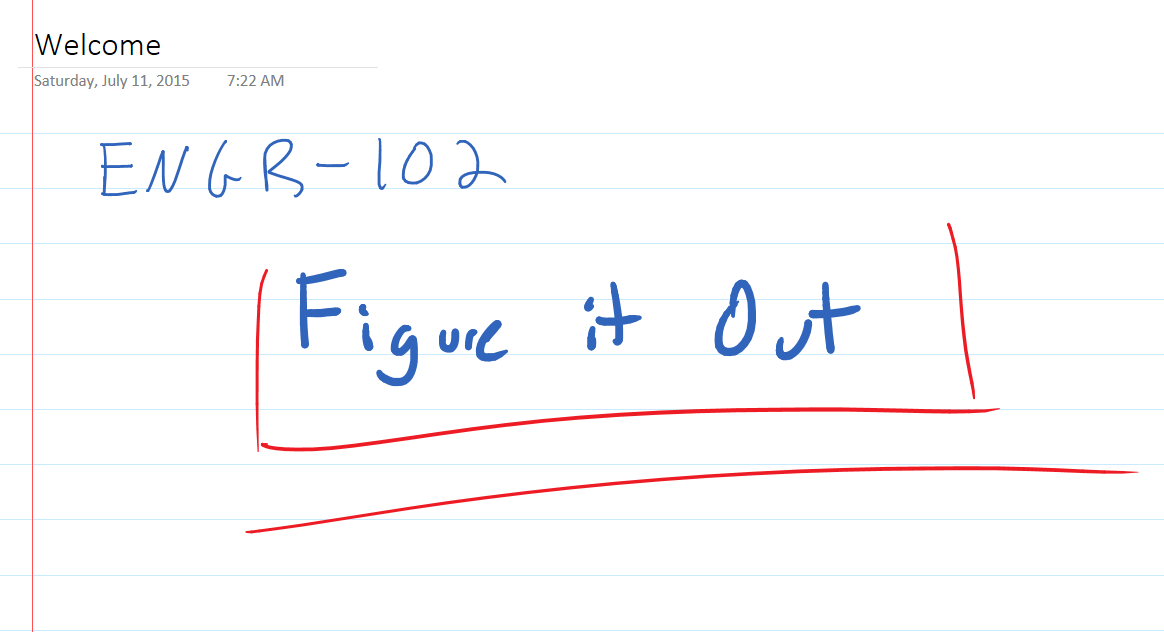 Welcome
Saturday, July 11, 2015 7:22 AM
ENGR-102
Figure it Out